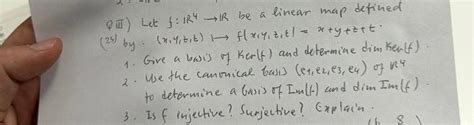 QIII) Let f: ℝ⁴ → ℝ be a linear map defined
(2y) by. (x,y,z,t) ↦ f(x,y,z,t) = x+y+z+t.
1. Give a basis of Ker(f) and determine dim Ker(f).
2. Use the canonical basis (e₁,e₂,e₃,e₄) of ℝ⁴
to determine a basis of Im(f) and dim Im(f).
3. Is f injective? Surjective? Explain.